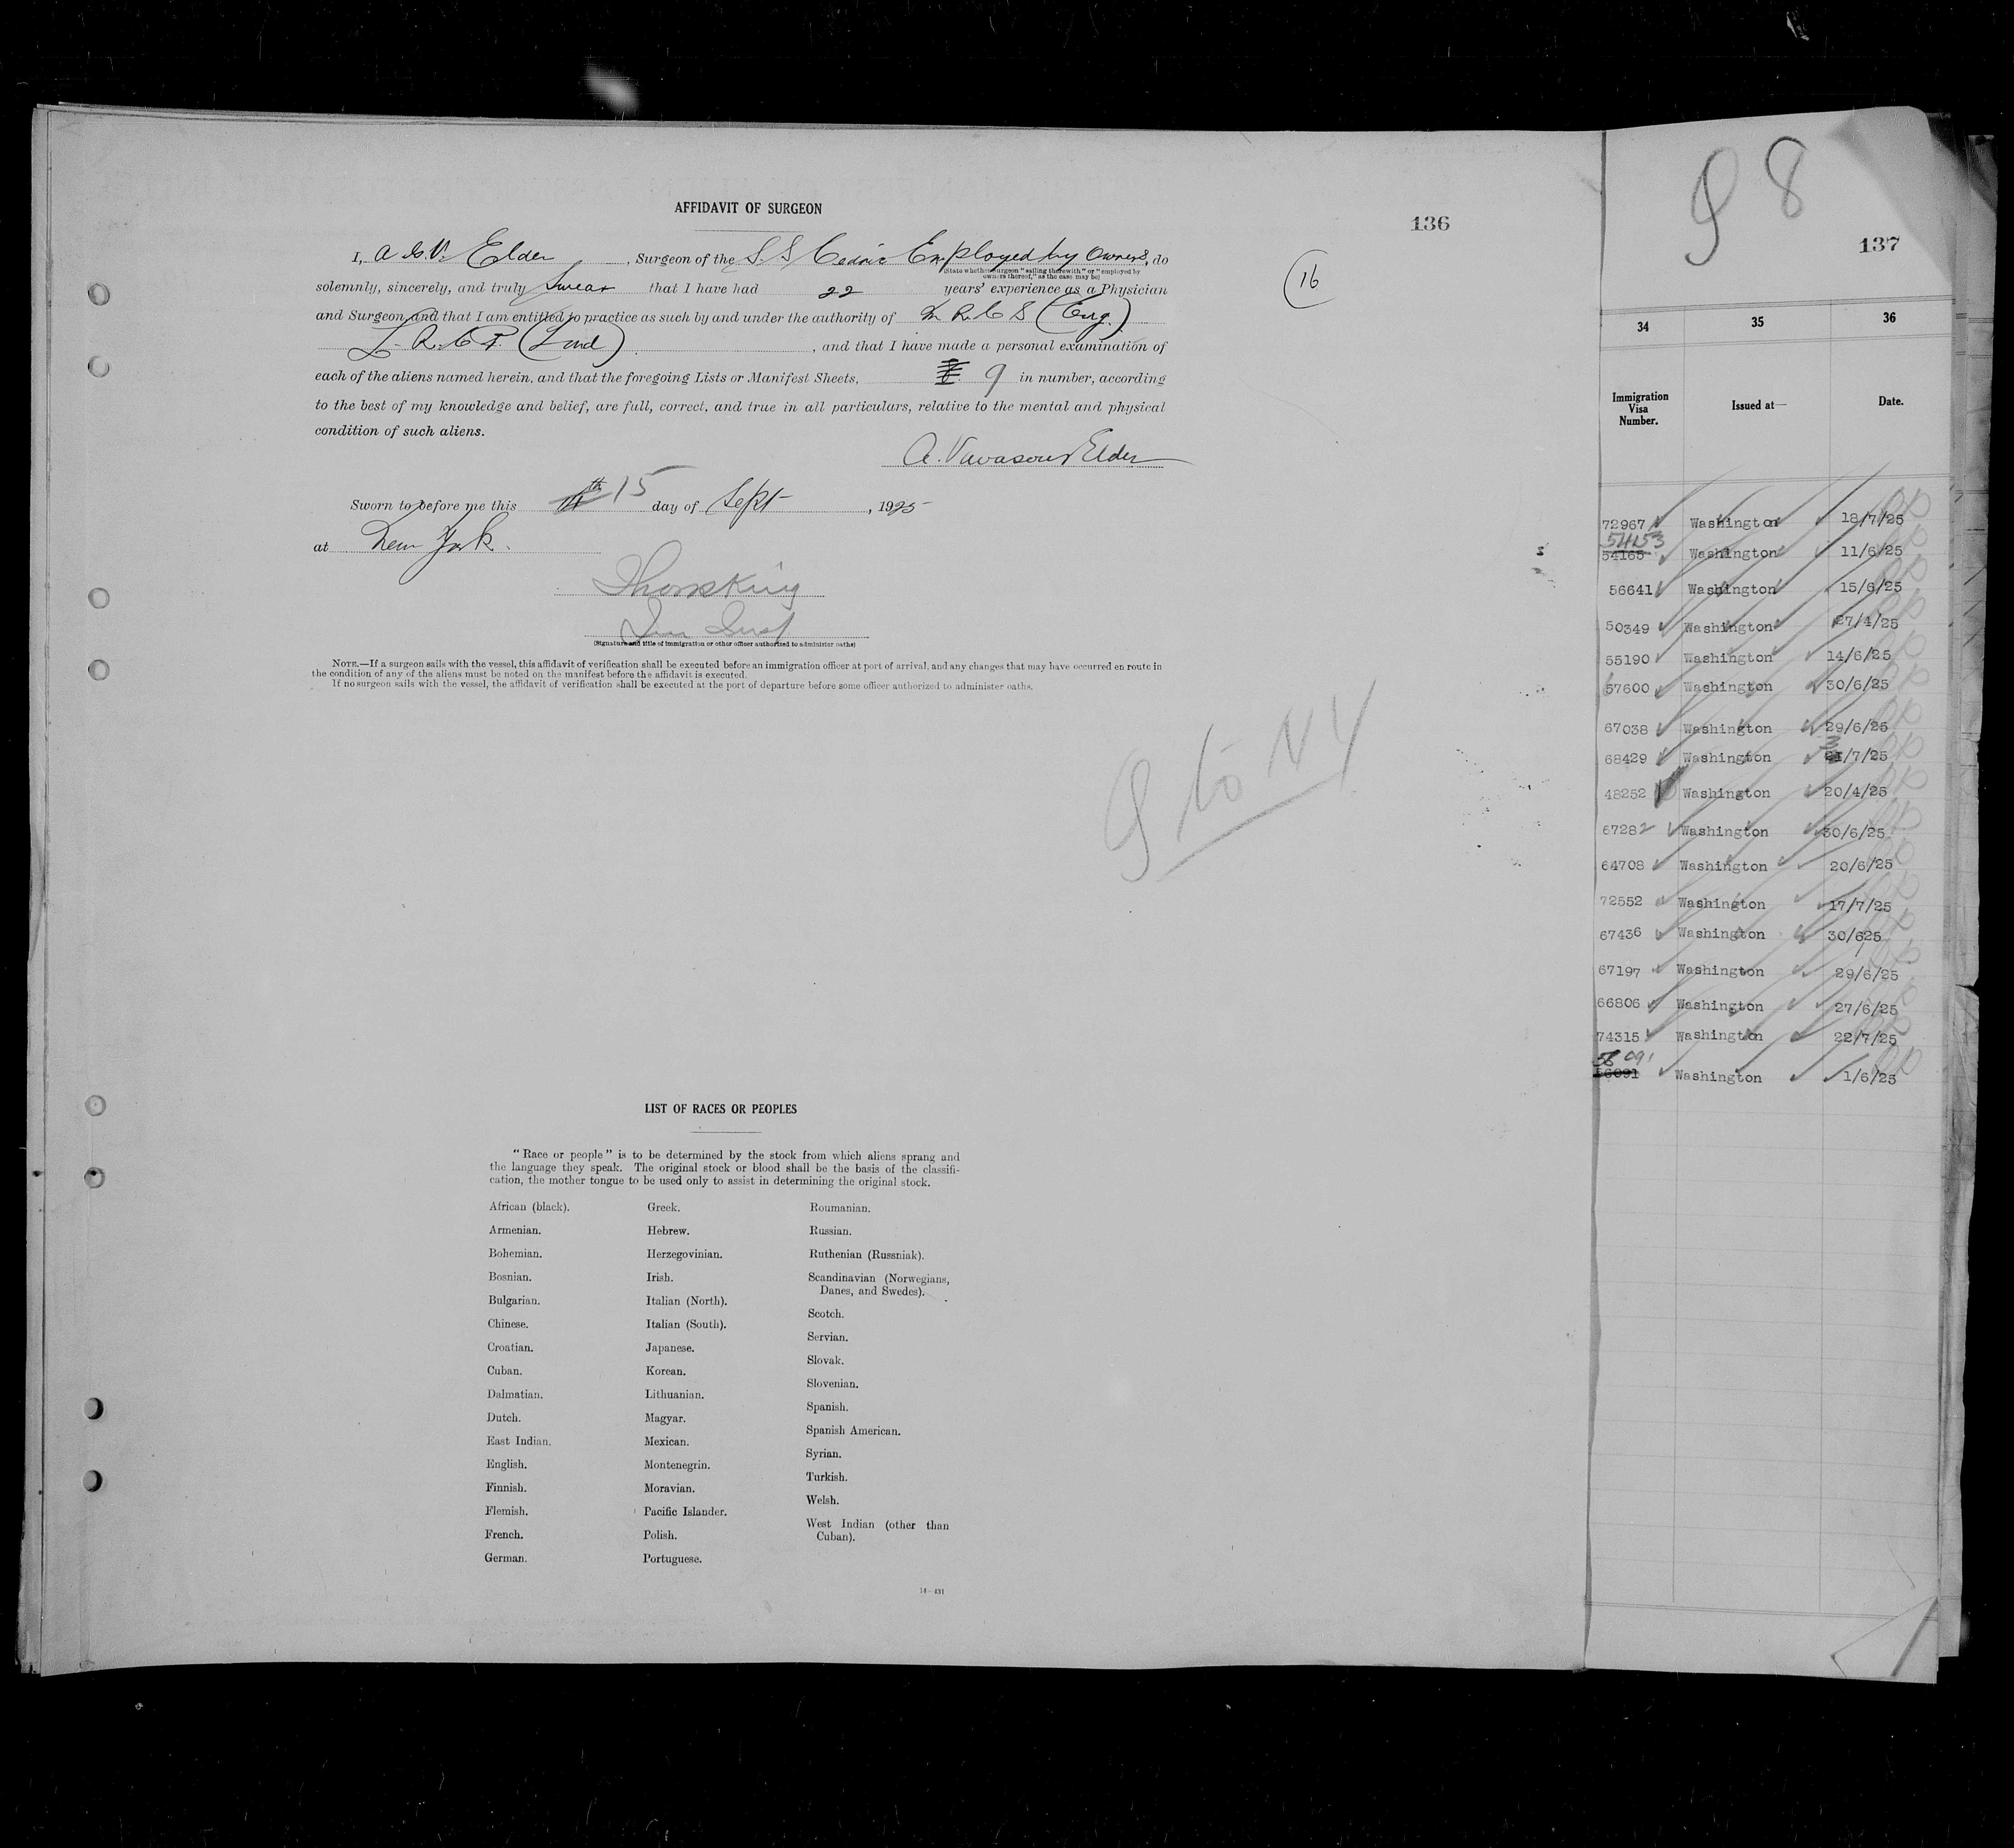 AFFIDAVIT OF SURGEON
136
I, A. G. V. Elder, Surgeon of the S. S. Cedric Employed by Owners, do
(State whether surgeon "sailing therewith" or "employed by
owners thereof," as the case may be)
16
solemnly, sincerely, and truly Swear that I have had 22 years' experience as a Physician
and Surgeon and that I am entitled to practice as such by and under the authority of M R. C S (Eng.)
L. R. C P. (Lond), and that I have made a personal examination of
each of the aliens named herein, and that the foregoing Lists or Manifest Sheets, 9 in number, according
to the best of my knowledge and belief, are full, correct, and true in all particulars, relative to the mental and physical
condition of such aliens.
A. Vavasour Elder
Sworn to before me this 15 day of Sept, 1925
at New York.
Thos King
Imm Insp
(Signature and title of immigration or other officer authorized to administer oaths)
NOTE.—If a surgeon sails with the vessel, this affidavit of verification shall be executed before an immigration officer at port of arrival, and any changes that may have occurred en route in
the condition of any of the aliens must be noted on the manifest before the affidavit is executed.
If no surgeon sails with the vessel, the affidavit of verification shall be executed at the port of departure before some officer authorized to administer oaths.
9 to NY
LIST OF RACES OR PEOPLES
"Race or people" is to be determined by the stock from which aliens sprang and
the language they speak. The original stock or blood shall be the basis of the classifi-
cation, the mother tongue to be used only to assist in determining the original stock.
African (black).
Armenian.
Bohemian.
Bosnian.
Bulgarian.
Chinese.
Croatian.
Cuban.
Dalmatian.
Dutch.
East Indian.
English.
Finnish.
Flemish.
French.
German.
Greek.
Hebrew.
Herzegovinian.
Irish.
Italian (North).
Italian (South).
Japanese.
Korean.
Lithuanian.
Magyar.
Mexican.
Montenegrin.
Moravian.
Pacific Islander.
Polish.
Portuguese.
Roumanian.
Russian.
Ruthenian (Russniak).
Scandinavian (Norwegians,
Danes, and Swedes).
Scotch.
Servian.
Slovak.
Slovenian.
Spanish.
Spanish American.
Syrian.
Turkish.
Welsh.
West Indian (other than
Cuban).
14—431
98
137
34 35 36
Immigration
Visa
Number.
Issued at—
Date.
72967 Washington 18/7/25
54153
54165 Washington 11/6/25
56641 Washington 15/6/25
50349 Washington 27/4/25
55190 Washington 14/6/25
57600 Washington 30/6/25
67038 Washington 29/6/25
68429 Washington /7/25
48252 Washington 20/4/25
67282 Washington 30/6/25
64708 Washington 20/6/25
72552 Washington 17/7/25
67436 Washington 30/625
67197 Washington 29/6/25
66806 Washington 27/6/25
74315 Washington 22/7/25
56091
56091 Washington 1/6/25